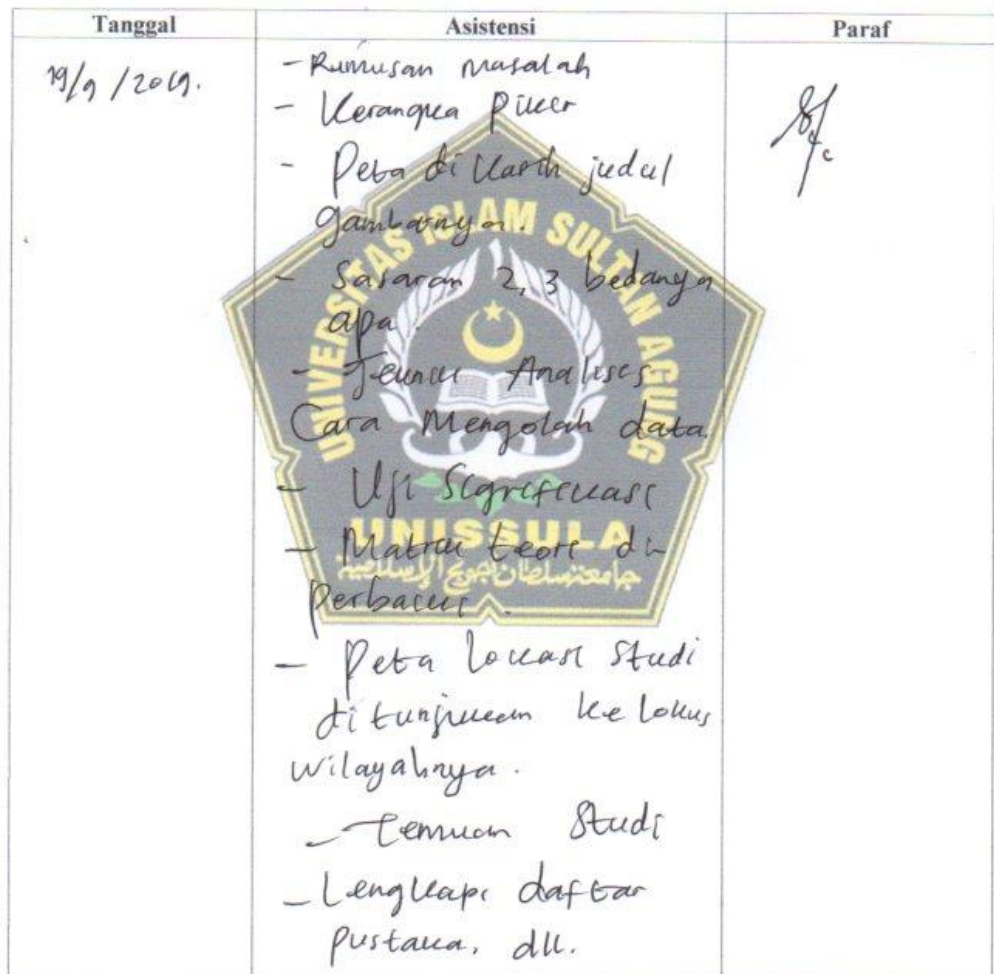 Tanggal Asistensi Paraf
19/9/2019.
- Rumusan masalah
- Kerangka Pikir
- Peta di kasih judul
gambarnya.
- Sasaran 2, 3 bedanya
apa.
- Teknik Analisis
Cara Mengolah data.
- Uji Signifikasi
- Matrik teori di
Perbaiki.
- Peta lokasi Studi
ditunjukan ke lokus
wilayahnya.
- Temuan Studi
- Lengkapi daftar
Pustaka, dll.
UNIVERSITAS ISLAM SULTAN AGUNG
UNISSULA
جامعة سلطان أجونج الإسلامية